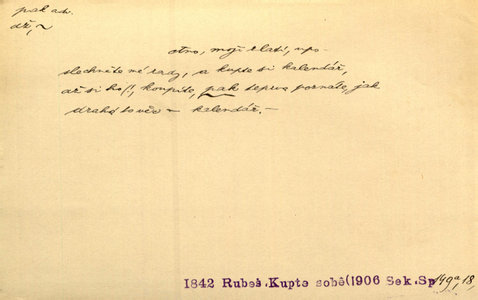 pak a.
až, ~
otno, moji zlatí, upo-
slechněte mé rady, a kupte si kalendář,
až si ho (!, koupíte, pak teprve poznáte, jak
drahá to věc – kalendář. –
1842 Rubeš, Kupte sobě (1906 Sek. Sp 149a, 18,